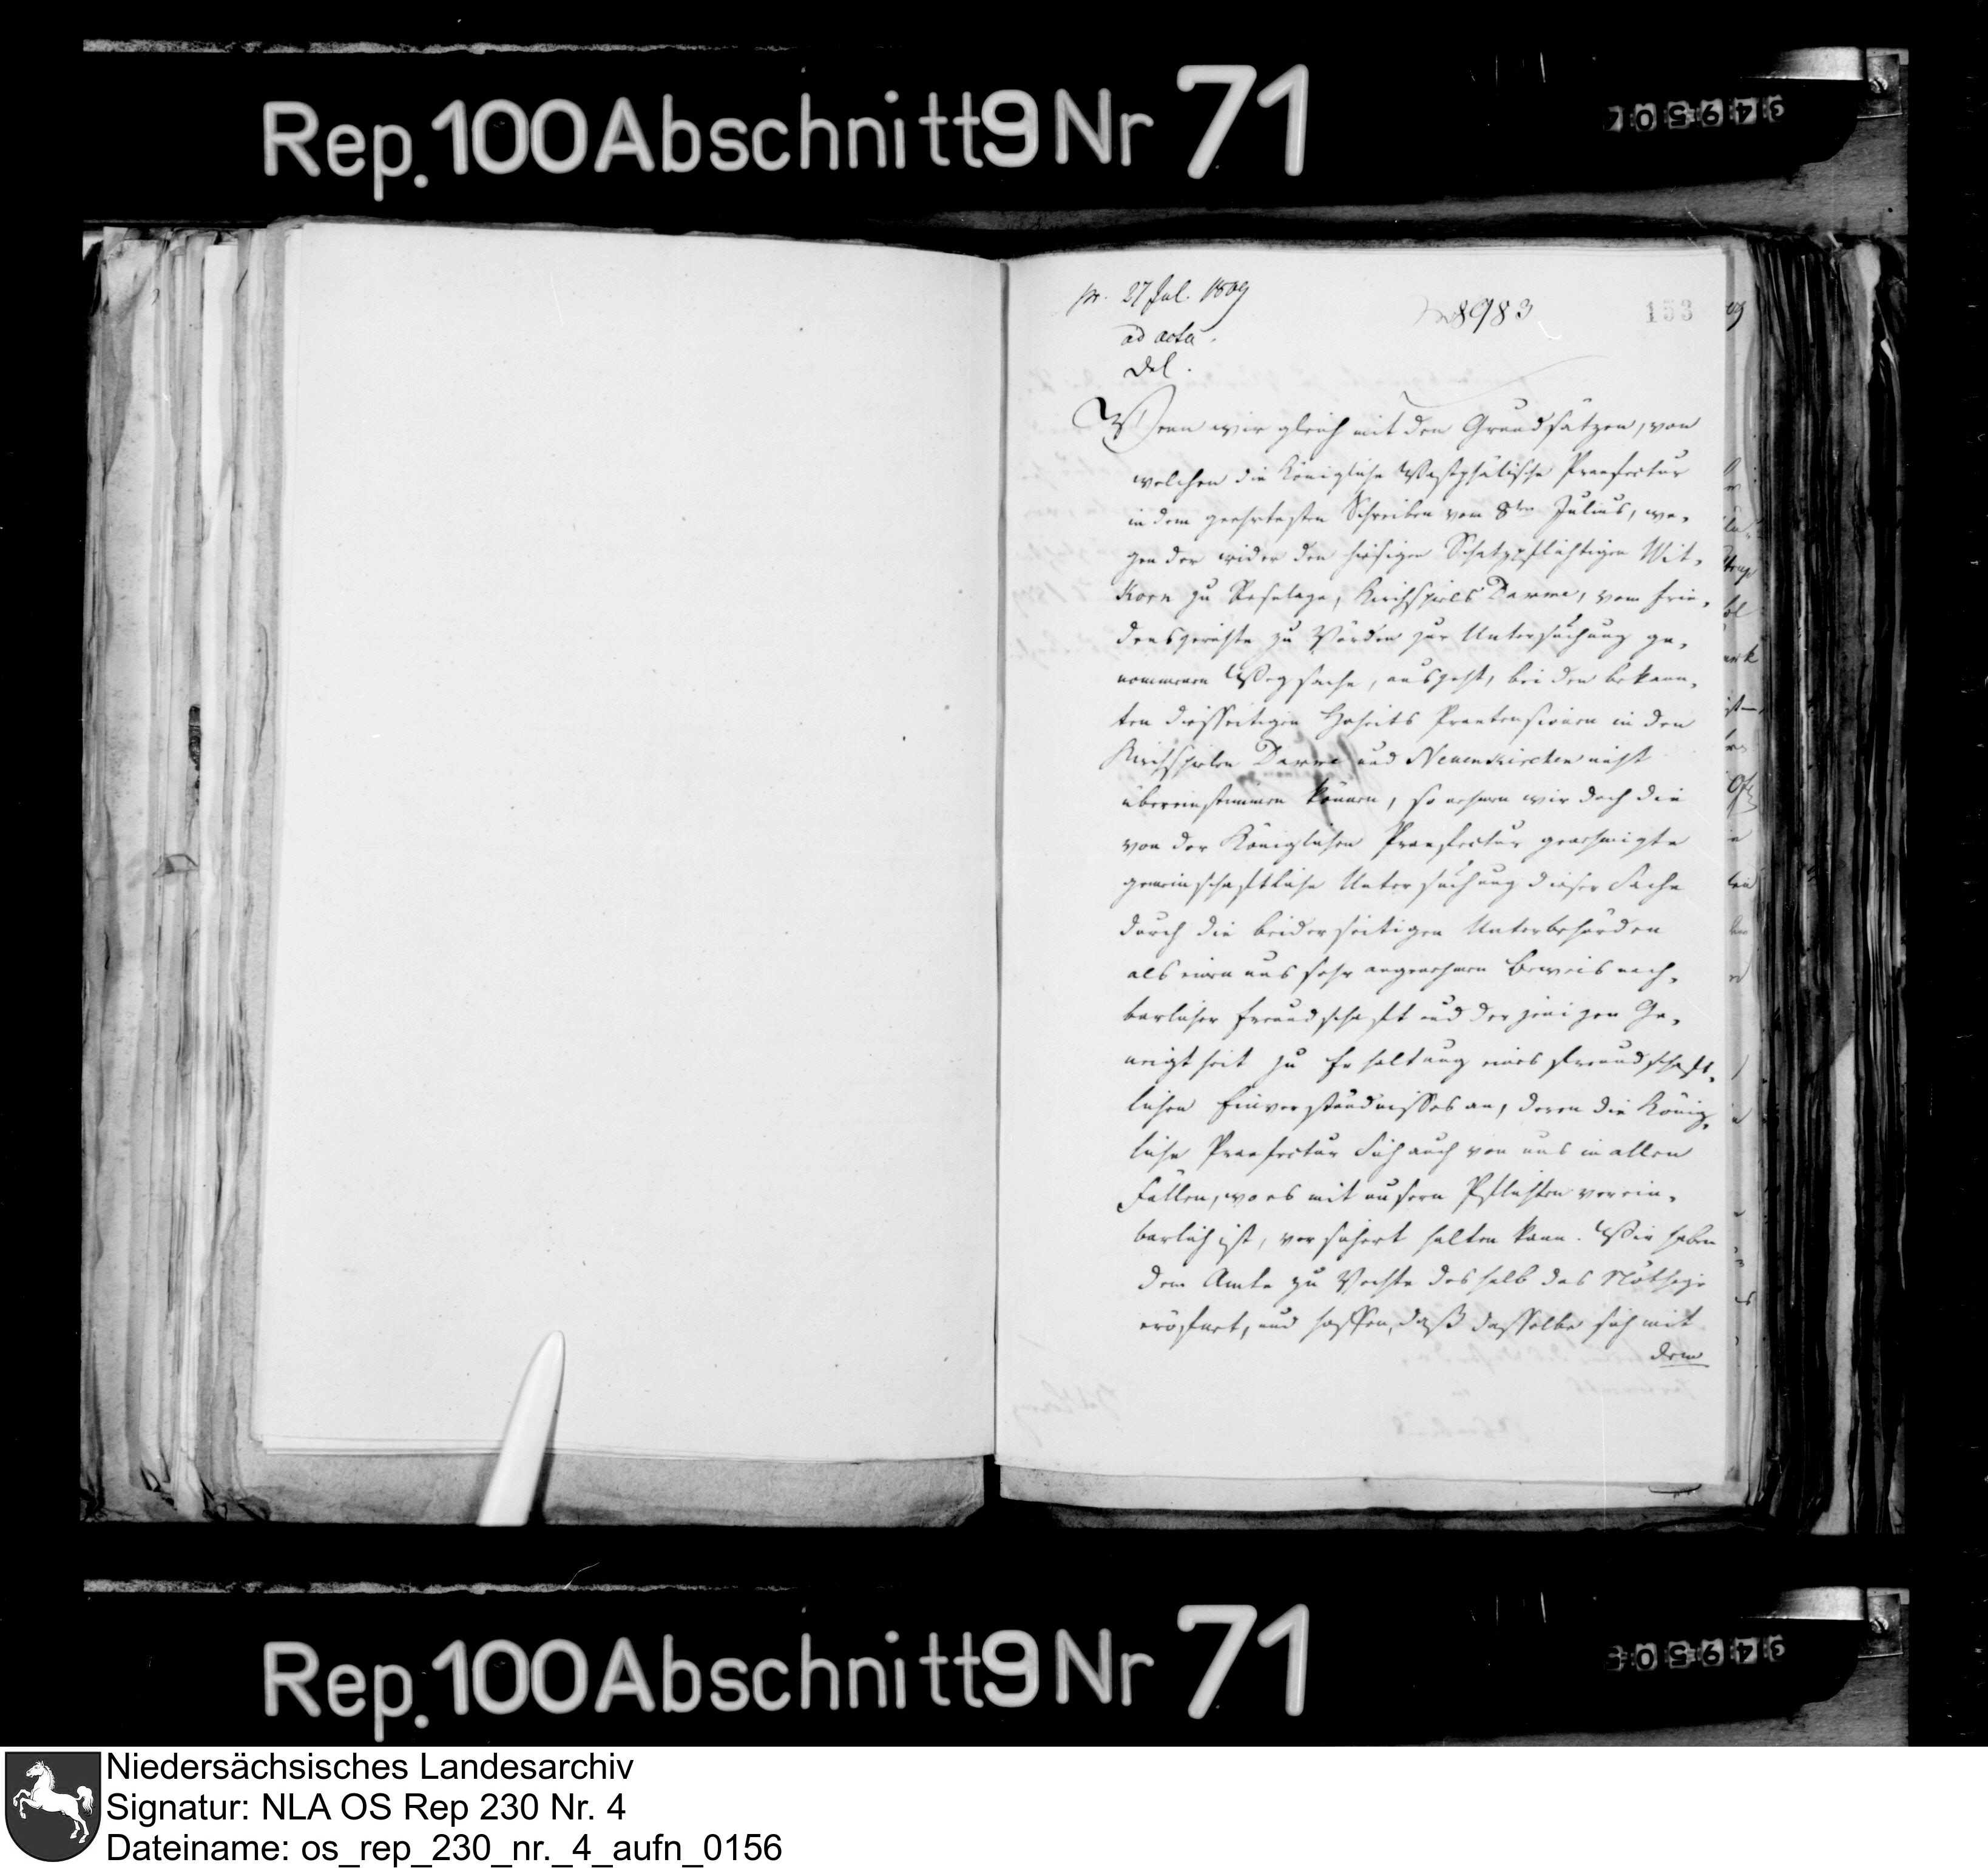 Rep. 100 Abschnitt 9 Nr 71
pr. 27 Jul. 1809
ad acta.
Del.
8983
153
Wenn wir gleich mit den Grundsätzen, von
welchen die Königliche Westphälische Praefectur
in dem geehrtesten Schreiben vom 8ten Julius, we-
gen der wider den hiesigen Schatzpflichtigen Wit-
korn zu Osterlage, Kirchspiels Damme, vom Frie-
densgerichte zu Vörden zur Untersuchung ge-
nommenen Wegsache, ausgeht, bei den bekann-
ten diesseitigen Hoheits Praetensionen in den
Kirchspielen Damme und Neuenkirchen nicht
übereinstimmen können, so nehmen wir doch die
von der Königlichen Praefectur genehmigte
gemeinschaftliche Untersuchung dieser Sache
durch die beiderseitigen Unterbehörden
als einen uns sehr angenehmen Beweis nach-
barlicher Freundschaft und derjenigen Ge-
neigtheit zu Erhaltung eines freundschaft-
lichen Einverständnisses an, deren die König-
liche Praefectur Sich auch von uns in allen
Fällen, wo es mit unsern Pflichten verein-
barlich ist, versichert halten kann. Wir haben
dem Amte zu Vechte deshalb das Nöthige
eröfnet, und hoffen, daß dasselbe sich mit
dem
Rep. 100 Abschnitt 9 Nr 71
Niedersächsisches Landesarchiv
Signatur: NLA OS Rep 230 Nr. 4
Dateiname: os_rep_230_nr._4_aufn_0156